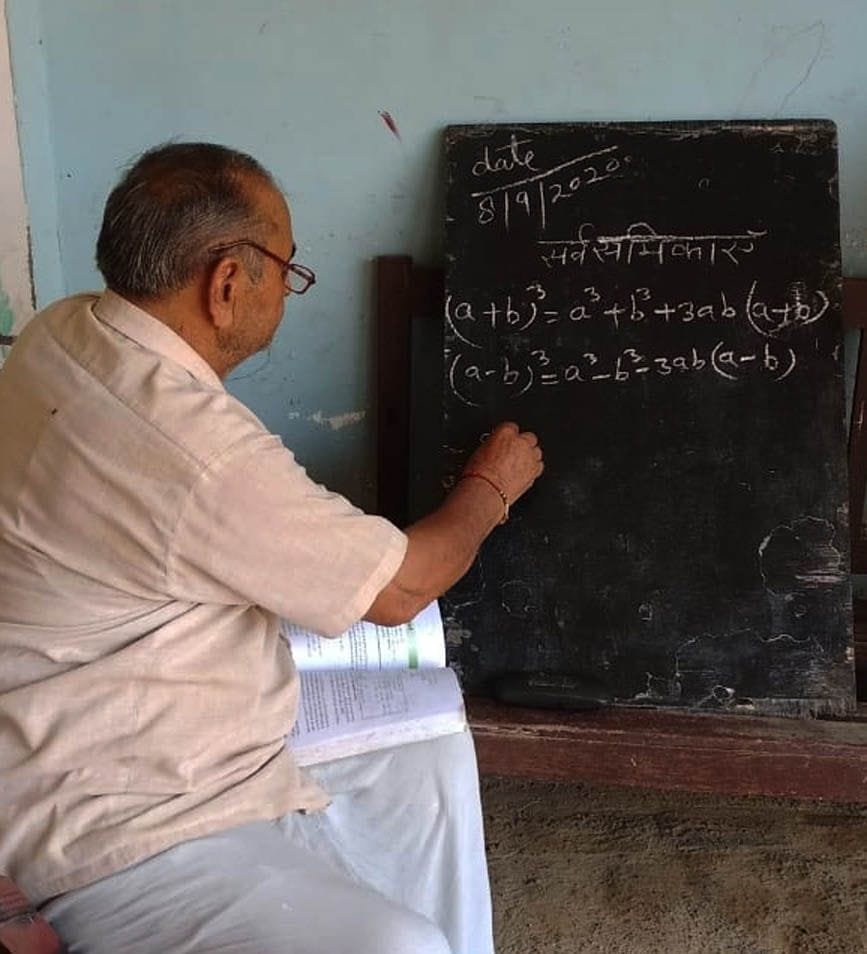 date
8|9|2020
सर्वसमिकाएं
(a+b)³=a³+b³+3ab(a+b)
(a-b)³=a³-b³-3ab(a-b)